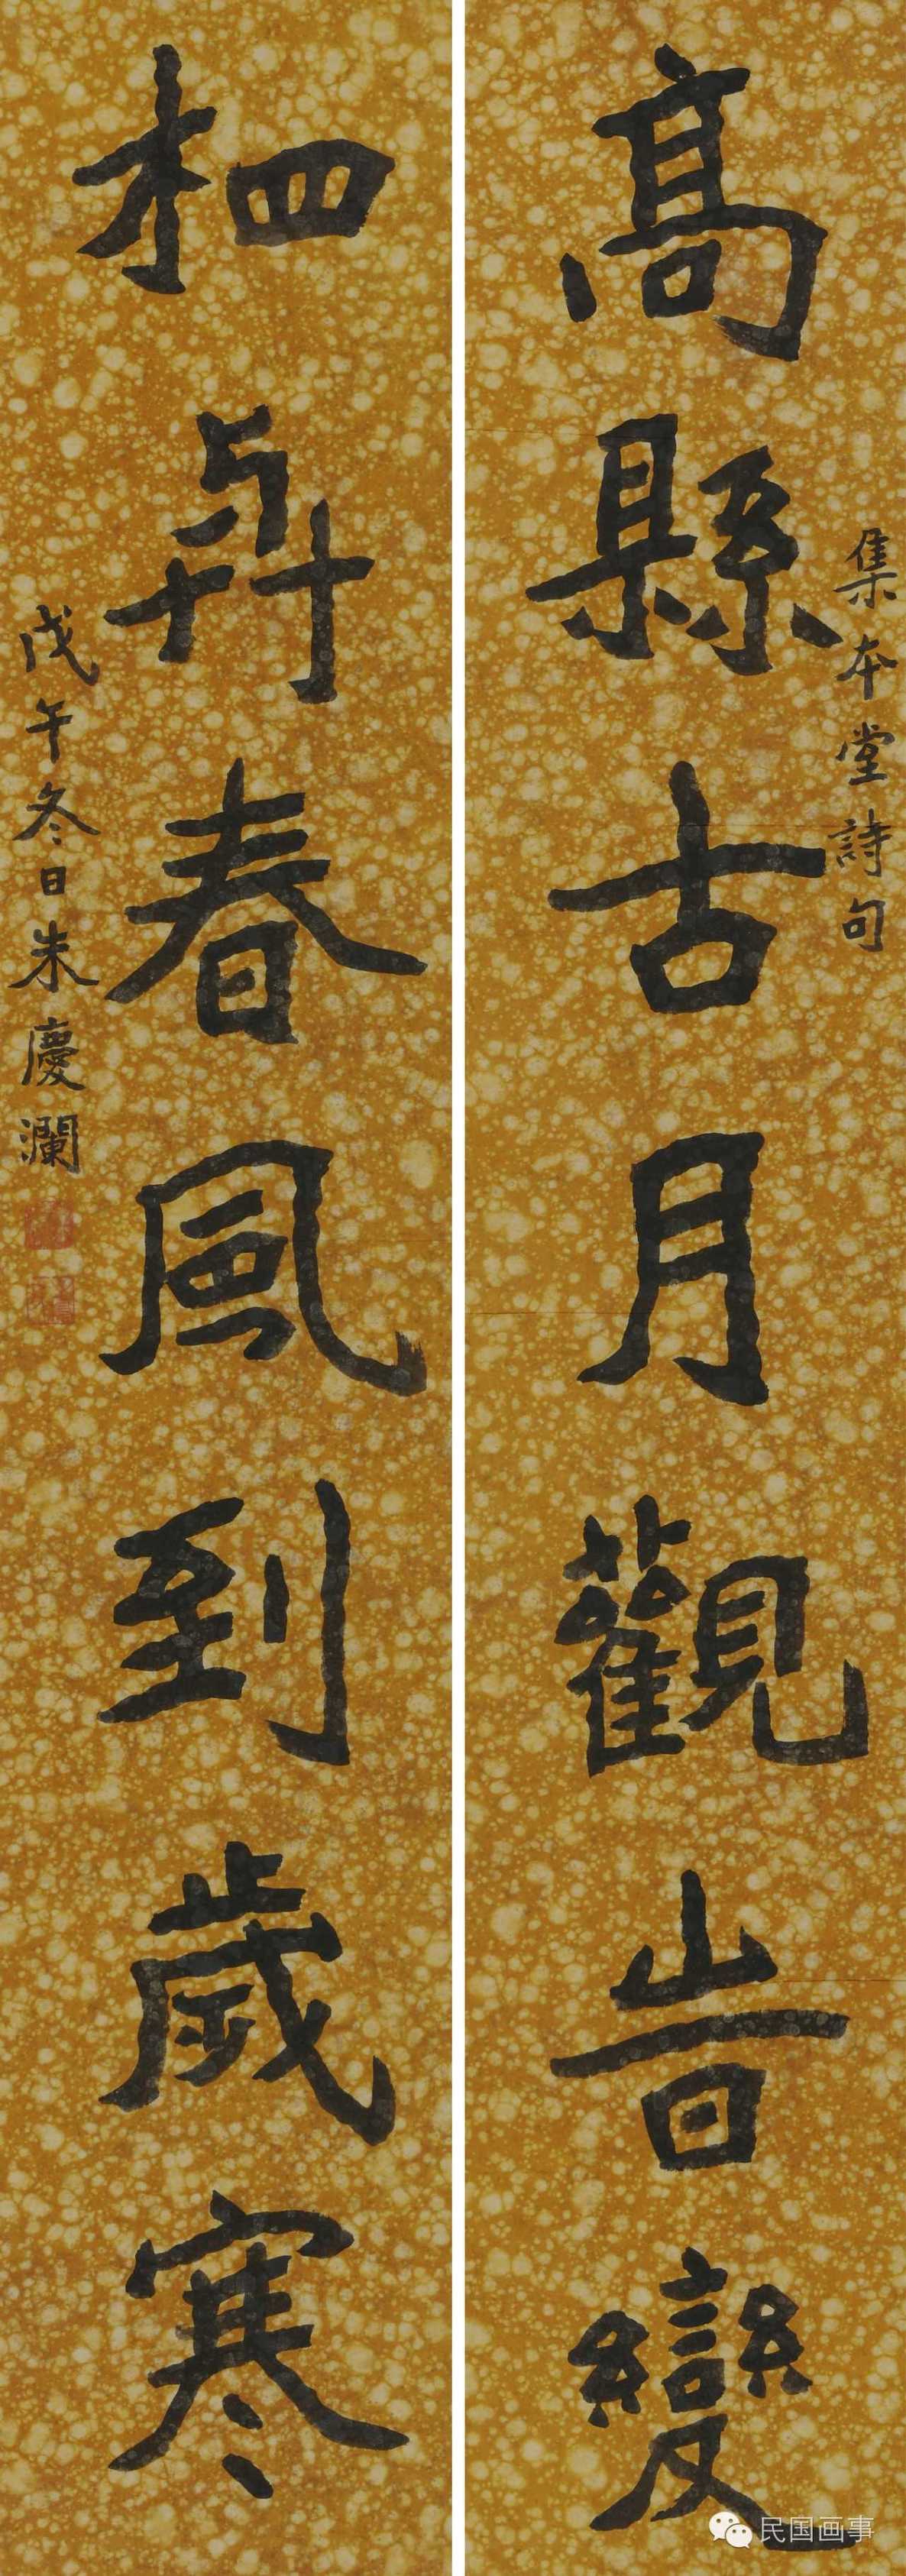 集本堂詩句
高縣古月觀旹變
栖𠦪春風到歲寒
戊午冬日朱慶瀾
民国画事